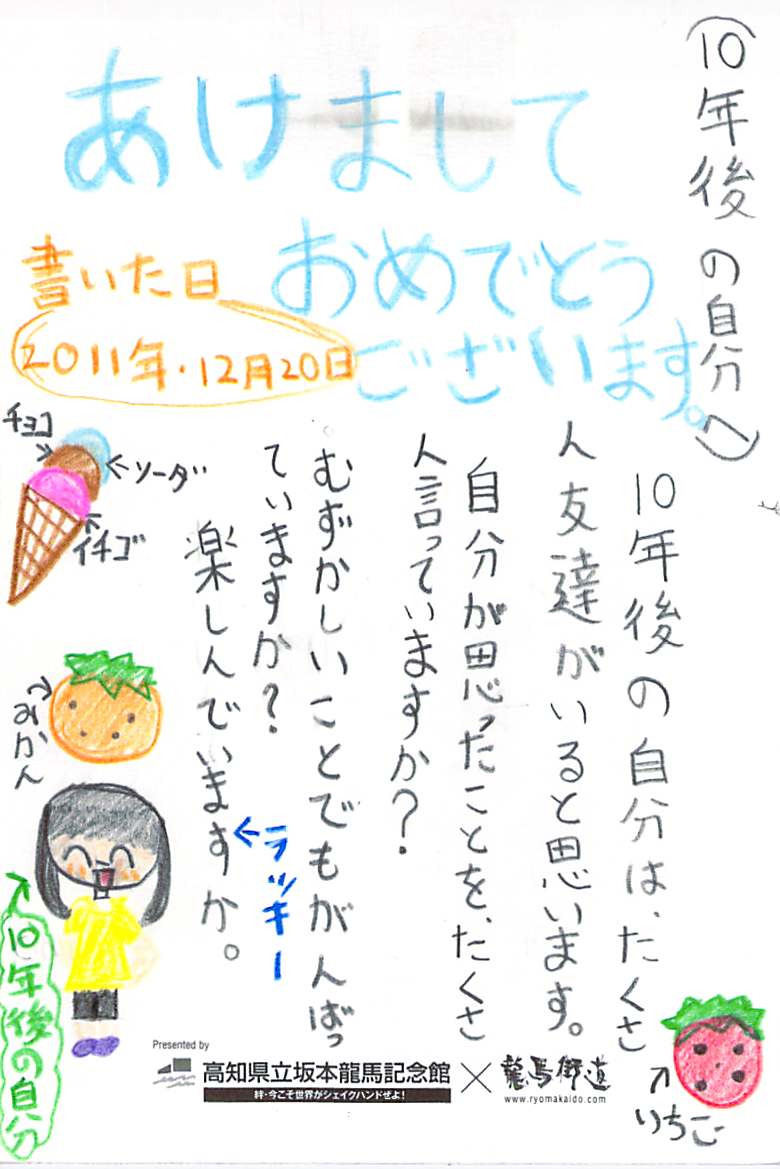 (10年後の自分へ)
あけまして
おめでとう
ございます。
書いた日
2011年・12月20日
10年後の自分は、たくさ
ん友達がいると思います。
自分が思ったことを、たくさ
ん言っていますか?
むずかしいことでもがんばっ
ていますか?
楽しんでいますか。
ラッキー
チョコ
ソーダ
イチゴ
みかん
10年後の自分
いちご
Presented by
高知県立坂本龍馬記念館
絆・今こそ世界がシェイクハンドせよ!
×
龍馬街道
www.ryomakaido.com